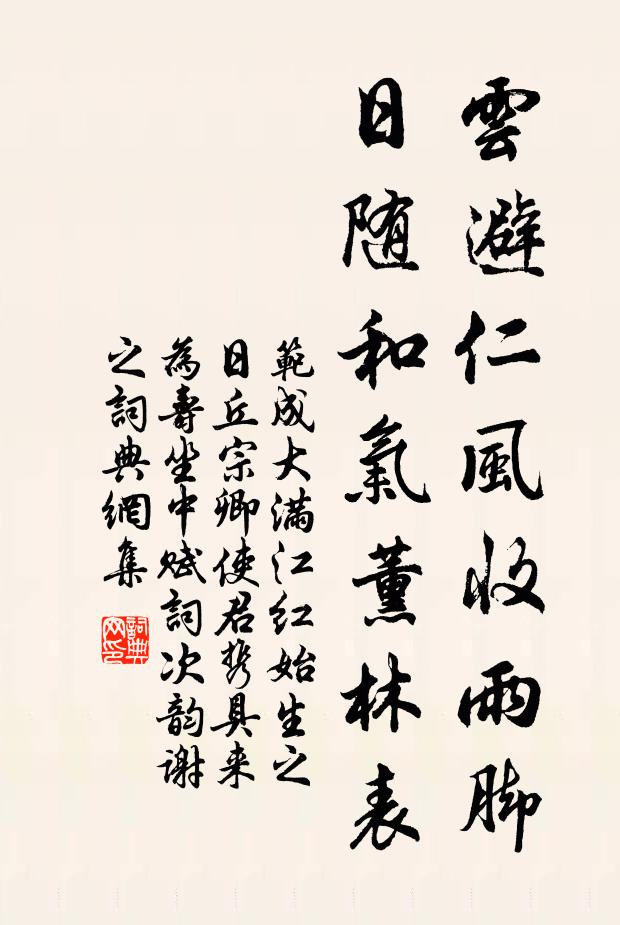 雲避仁風收雨脚
日随和氣薰林表
範成大满江红始生之
日丘宗卿使君携具来
為壽坐中赋詞次韵谢
之詞典網集
詞典网印